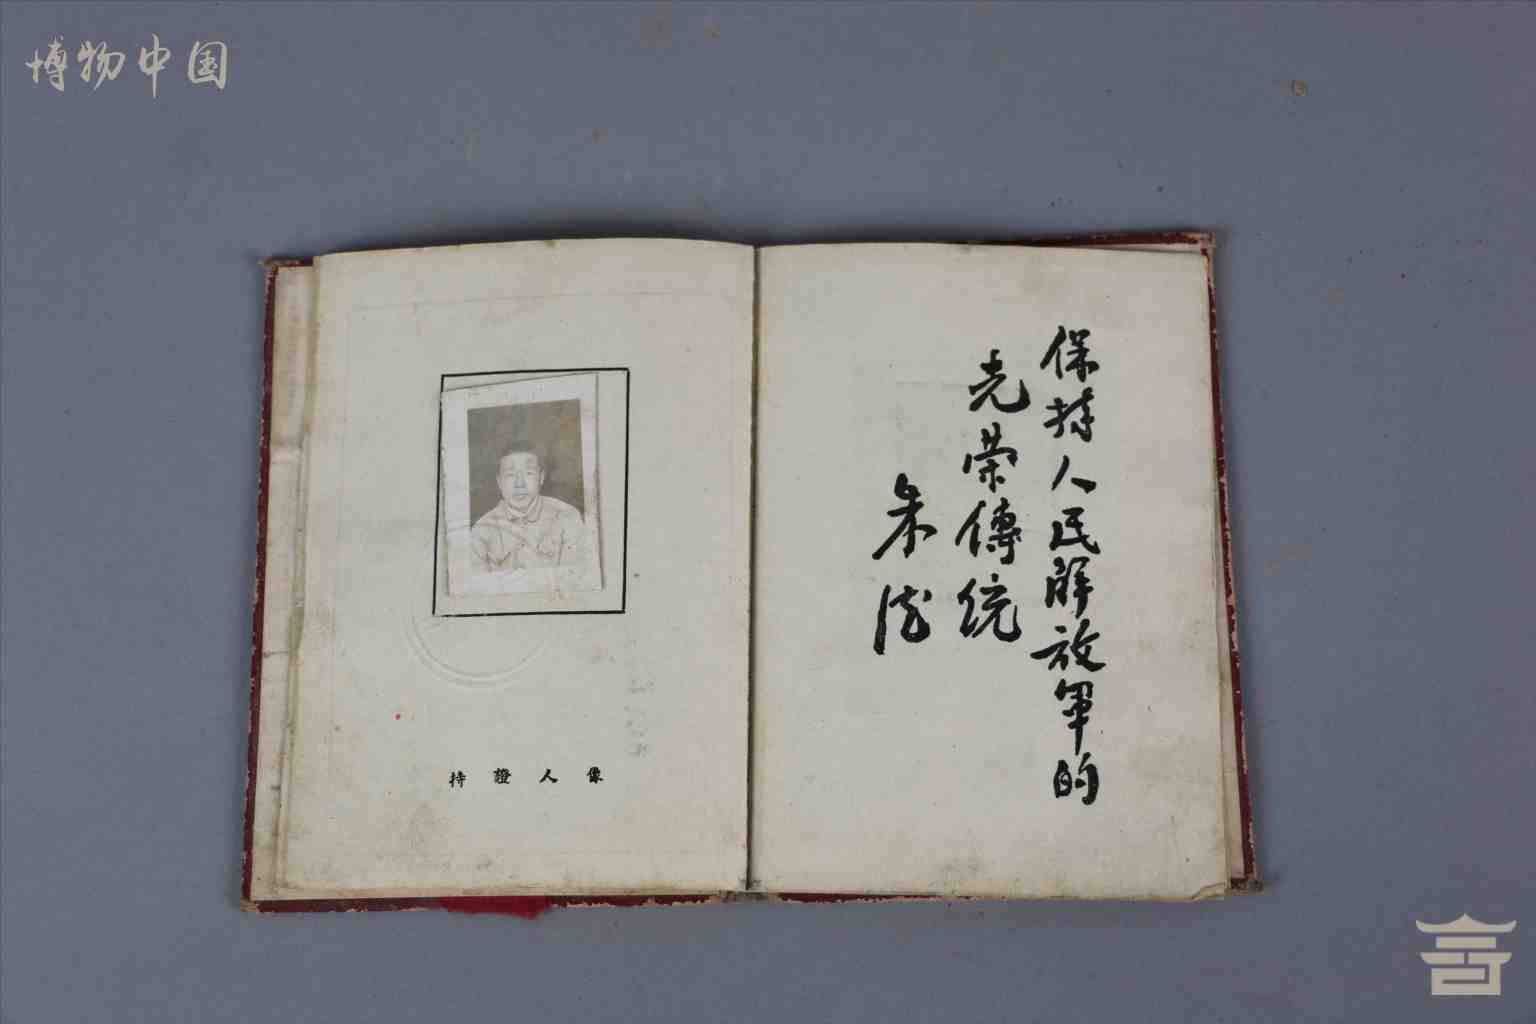 博物中国
保持人民解放軍的
光荣傳統
朱德
持證人像